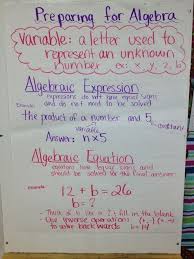 Preparing for Algebra
Variable: a letter used to
represent an unknown
number ex: x, y, z, b
Algebraic Expression
expressions do not have equal signs
and do not need to be solved
Example:
the product of a number and 5
variable
Answer: n x 5
Algebraic Equation
equations have equal signs and
should be solved for the final answer
example:
12 + b = 26
b = ?
- Think of b like a ?, fill in the blank
- Use inverse operations (+ -) (÷ x)
to work backwards